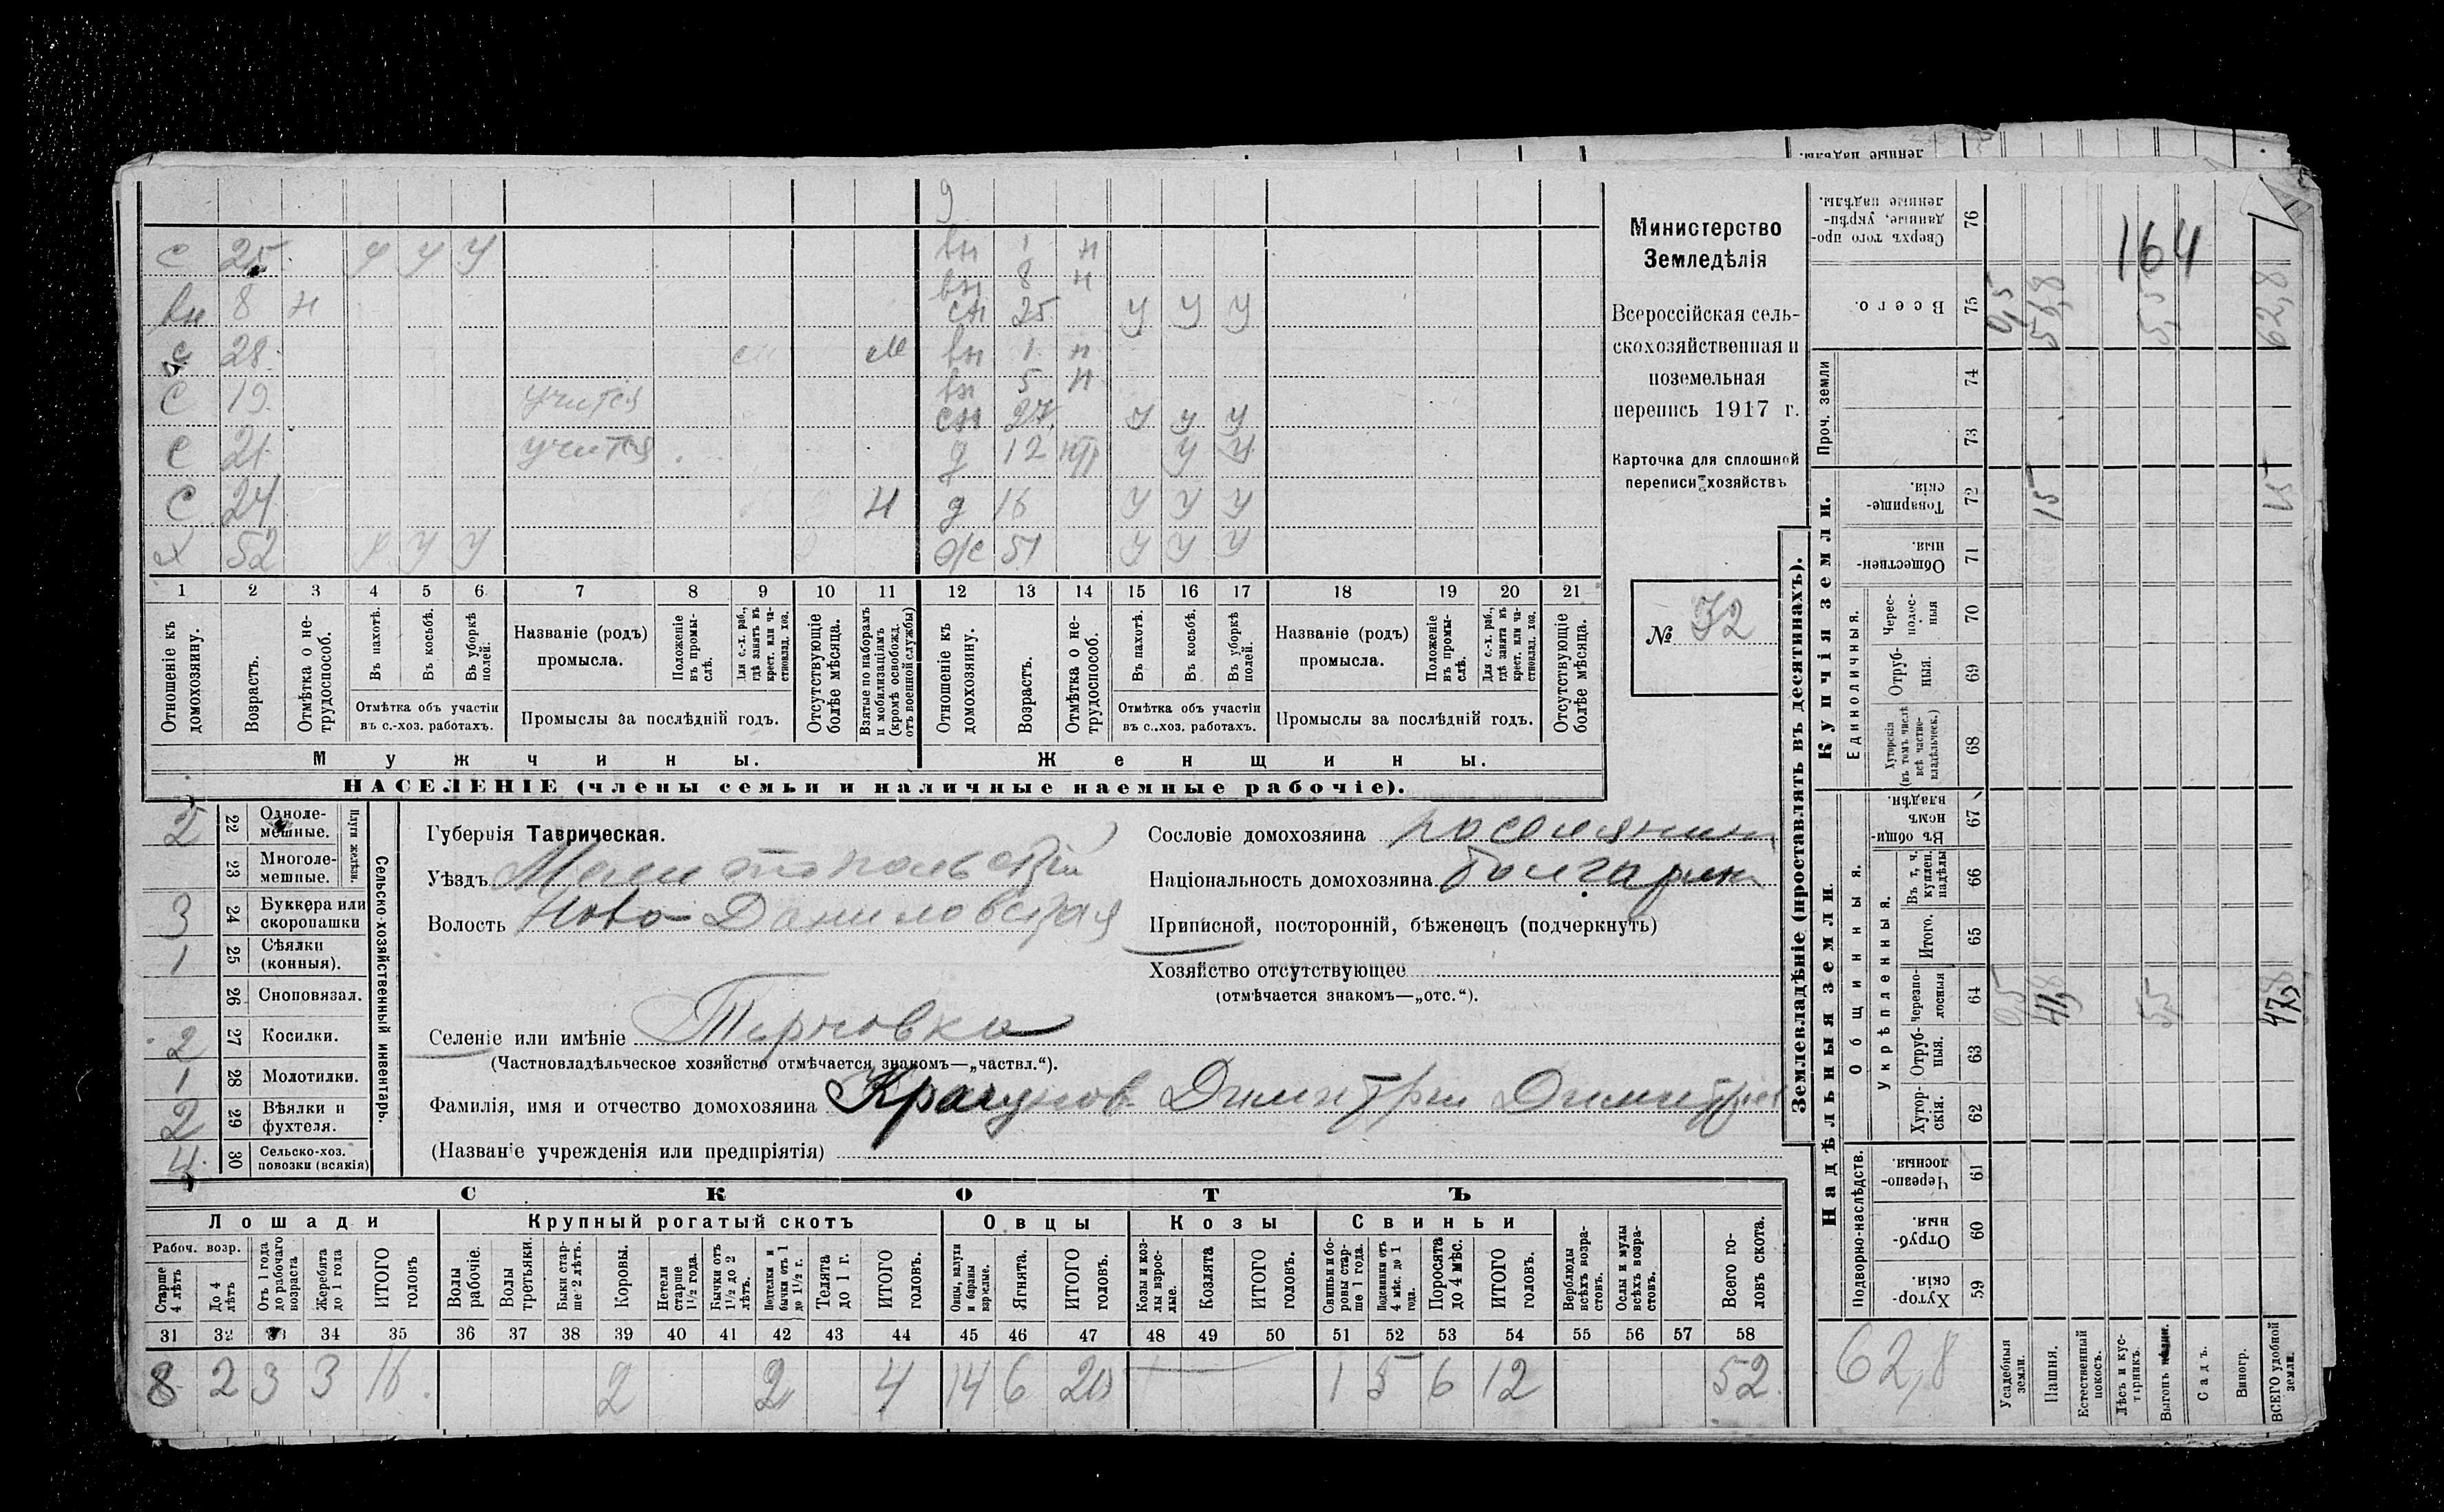 9
с 25 у у у вн 1 н
вн 8 н
вн 8 н сн 25 у у у
с 28 вн 1 н
вн 5 н
с 19 учится сн 27 у у у
с 21 учится д 12 у у
с 24 н д 16 у у у
х 52 у у ж 51 у у у
1 2 3 4 5 6 7 8 9 10 11 12 13 14 15 16 17 18 19 20 21
Отношеніе къ домохозяину.
Возрастъ.
Отмѣтка о не-трудоспособ.
Въ пахотѣ.
Въ косьбѣ.
Въ уборкѣ полей.
Отмѣтка объ участіи
въ с.-хоз. работахъ.
Названіе (родъ)
промысла.
Положеніе въ промы-слѣ.
Для с.-х. раб., гдѣ занятъ въ крест. или ча-стновлад. хоз.
Промыслы за послѣдній годъ.
Отсутствующіе болѣе мѣсяца.
Взятые по наборамъ и мобилизаціямъ (кромѣ освобожд. отъ военной службы)
Отношеніе къ домохозяину.
Возрастъ.
Отмѣтка о не-трудоспособ.
Въ пахотѣ.
Въ косьбѣ.
Въ уборкѣ полей.
Отмѣтка объ участіи
въ с..хоз. работахъ.
Названіе (родъ)
промысла.
Положеніе въ промы-слѣ.
Для с.-х. раб., гдѣ занята въ крест. или ча-стновлад. хоз.
Промыслы за послѣдній годъ.
Отсутствующіе болѣе мѣсяца.
Мужчины.
Женщины.
НАСЕЛЕНІЕ (члены семьи и наличные наемные рабочіе).
Министерство
Земледѣлія
Всероссійская сель-
скохозяйственная и
поземельная
перепись 1917 г.
Карточка для сплошной
переписи хозяйствъ
№ 72
2 22 Одноле-мешные.
23 Многоле-мешные.
Плуги желѣзн.
3 24 Буккера или скоропашки
1 25 Сѣялки (конныя).
26 Сноповязал.
2 27 Косилки.
1 28 Молотилки.
2 29 Вѣялки и фухтеля.
4 30 Сельско-хоз. повозки (всякія)
Сельско-хозяйственный инвентарь.
Губернія Таврическая.
Уѣздъ Мелитопольскій
Волость Ново-Даниловская
Селеніе или имѣніе Терновка
(Частновладѣльческое хозяйство отмѣчается знакомъ—„частвл.“).
Фамилія, имя и отчество домохозяина Крачунов Димитрий Димитриев
(Названіе учрежденія или предпріятія)
Сословіе домохозяина поселянин
Національность домохозяина болгарин
Приписной, посторонній, бѣженецъ (подчеркнуть)
Хозяйство отсутствующее
(отмѣчается знакомъ—„отс.“).
СКОТЪ
Лошади
Крупный рогатый скотъ
Овцы
Козы
Свиньи
Рабоч. возр.
Старше 4 лѣтъ
До 4 лѣтъ
Отъ 1 года до рабочаго возраста
Жеребята до 1 года
ИТОГО головъ
Волы рабочіе.
Волы третьяки.
Быки стар-ше 2 лѣтъ.
Коровы.
Нетели старше 1½ года.
Бычки отъ 1½ до 2 лѣтъ.
Подтелки и бычки отъ 1 до 1½ г.
Телята до 1 г.
ИТОГО головъ.
Овцы, валухи и бараны взрослые.
Ягнята.
ИТОГО головъ.
Козы и коз-лы взрос-лые.
Козлята
ИТОГО головъ.
Свиньи и бо-ровы стар-ше 1 года.
Подсвинки отъ 4 мѣс. до 1 года.
Поросята до 4 мѣс.
ИТОГО головъ.
Верблюды всѣхъ возра-стовъ.
Ослы и мулы всѣхъ возра-стовъ.
Всего го-ловъ скота.
31 32 33 34 35 36 37 38 39 40 41 42 43 44 45 46 47 48 49 50 51 52 53 54 55 56 57 58
8 2 3 3 16 2 2 4 14 6 20 1 5 6 12 52
Землевладѣніе (проставлять въ десятинахъ).
Надѣльныя земли.
Купчія земли.
Проч. земли
Подворно-наслѣдств.
Общинныя.
Укрѣпленныя.
Единоличныя.
Сверхъ того про-данные, укрѣп-ленные надѣлы. 76
Всего. 75 0,5 56,8 5,5 62,8
74
73
Товарище-скія. 72 15 15
Обществен-ныя. 71
Черес-полос-ныя 70
Отруб-ныя. 69
Хуторскія (въ томъ числѣ всѣ частно-владѣльческ.) 68
Въ общин-номъ владѣн. 67
Въ т. ч. куплен. надѣлы 66
Итого. 65
Черезпо-лосныя 64 0,5 5,5 47,8
Отруб-ныя. 63
Хутор-скія. 62
Черезпо-лосныя. 61
Отруб-ныя. 60
Хутор-скія. 59
164
62,8
Усадебныя земли.
Пашня.
Естественный покосъ.
Лѣсъ и кус-тарникъ.
Выгонъ
Садъ.
Виногр.
ВСЕГО удобной земли.
ленные надѣлы.